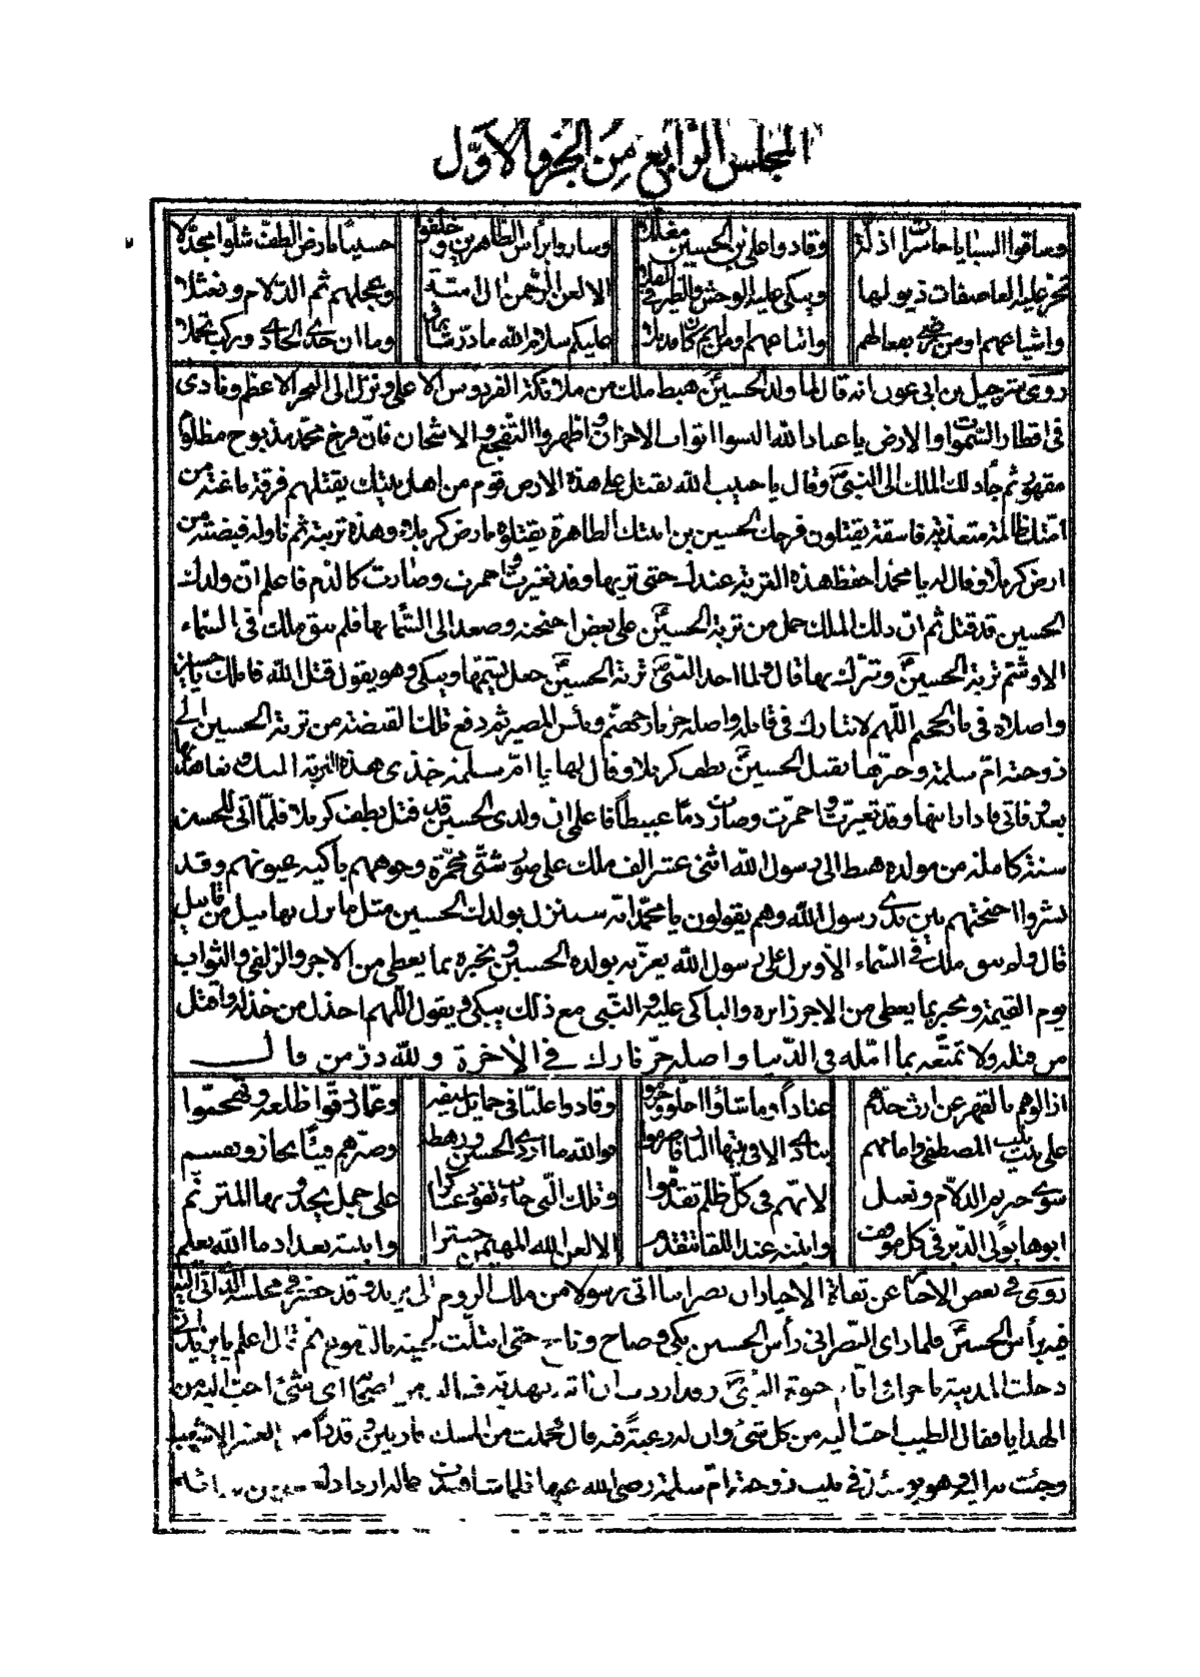 المجلس الرابع من الجزو الاول
وساقوا السبايا حاسرات اذلة وقادوا علي بن الحسين مغللا وساروا برأس الطاهرين وخلفوا حسينا بارض الطف شلوا مجدلا
تجر عليه العاصفات ذيولها ويبكي عليه الوحش والطير في الفلا الا لعن الرحمن ال امية وعجلهم ثم الدلام ونعثلا
واشياعهم واتباعهم ومن عليكم سلام الله ما در شارق وما ان حدى الحادي وركب تحملا
روى شرحبيل بن ابي عون انه قال لما ولد الحسين هبط ملك من ملائكة الفردوس الاعلى ونزل الى البحر الاعظم ونادى
في اقطار السموات والارض يا عباد الله البسوا اثواب الاحزان واظهروا التفجع والاشجان فان فرخ محمد مذبوح مظلوم
مقهور ثم جاء ذلك الملك الى النبي وقال يا حبيب الله يقتل على هذه الارض قوم من اهل بيتك يقتلهم فرقة باغية من
امتك ظالمة متعدية فاسقة يقتلون فرخك الحسين بن ابنتك الطاهرة يقتلوه بارض كربلا وهذه تربته ثم ناوله قبضة من
ارض كربلا وقال له يا محمد احفظ هذه التربة عندك حتى تريها وقد تغيرت واحمرت وصارت كالدم فاعلم ان ولدك
الحسين قد قتل ثم ان ذلك الملك حمل من تربة الحسين على بعض اجنحته وصعد الى السماء بها فلم يبق ملك في السماء
الا وشم تربة الحسين وتبرك بها قال ولما اخذ النبي تربة الحسين جعل يشمها ويبكي وهو يقول قتل الله قاتلك يا حسين
واصلاه في نار الجحيم اللهم لا تبارك في قاتله واصله حر نار جهنم وبئس المصير ثم دفع تلك القبضة من تربة الحسين الى
زوجته ام سلمة وخبرها بقتل الحسين بطف كربلا وقال لها يا ام سلمة خذي هذه التربة اليك وتعاهديها
بعد وفاتي فاذا رايتها وقد تغيرت واحمرت وصارت دما عبيطا فاعلمي ان ولدي الحسين قد قتل بطف كربلا فلما اتى للحسين
سنة كاملة من مولده هبط الى رسول الله اثنى عشر الف ملك على صور شتى محمرة وجوههم باكية عيونهم وقد
نشروا اجنحتهم بين يدي رسول الله وهم يقولون يا محمد انه سينزل بولدك الحسين مثل ما نزل بهابيل من قابيل
قال ولم يبق ملك في السماء الا ونزل على رسول الله يعزيه بولده الحسين ويخبره بما يعطى من الاجر والزلفى والثواب
يوم القيمة ويخبره بما يعطى من الاجر زائره والباكي عليه والنبي مع ذلك يبكي ويقول اللهم اخذل من خذله واقتل
من قتله ولا تمتعه بما امله في الدنيا واصله حر نارك في الاخرة ولله در من قال
ازالوهم بالقهر عن ارث جدهم عنادا وما شاؤا احلوا وحرموا وقادوا عليا في حمايل سيفه وعمار دقوا ضلعه وتهجموا
على بيت بنت المصطفى وامامهم ينادي الا في بيتها النار اضرموا فوالله ما اردى الحسين ورهطه وصيرهم فيئا يحاز ويقسم
سوى حبتر ثم الدلام ونعثل لانهم في كل ظلم تقدموا وتلك التي جاءت تقود عسكرا على جمل يحدو بها المترنم
ابوها يولي الدبر في كل موقف وابنته عند اللقا تتقدم الا لعن الله المهيمن حبترا وابنته بعداد ما الله يعلم
روى في بعض الاخبار عن ثقاة الاخيار ان نصرانيا اتى رسولا من ملك الروم الى يزيد وقد حضر في مجلسه الذي اتى اليه
فيه برأس الحسين فلما راى النصراني رأس الحسين بكى وصاح وناح حتى ابتلت لحيته بالدموع ثم قال اعلم يا يزيد اني
دخلت المدينة تاجرا في ايام حيوة النبي وقد اردت ان اتيه بهدية فسالت من اصحابه اي شئ احب اليه من
الهدايا فقال الطيب احب اليه من كل شئ وان له رغبة فيه قال فحملت من المسك فارتين وقدرا من العنبر الاشهب
وجئت بها اليه وهو يومئذ في بيت زوجته ام سلمة رضي الله عنها فلما شاهدت جماله ازداد